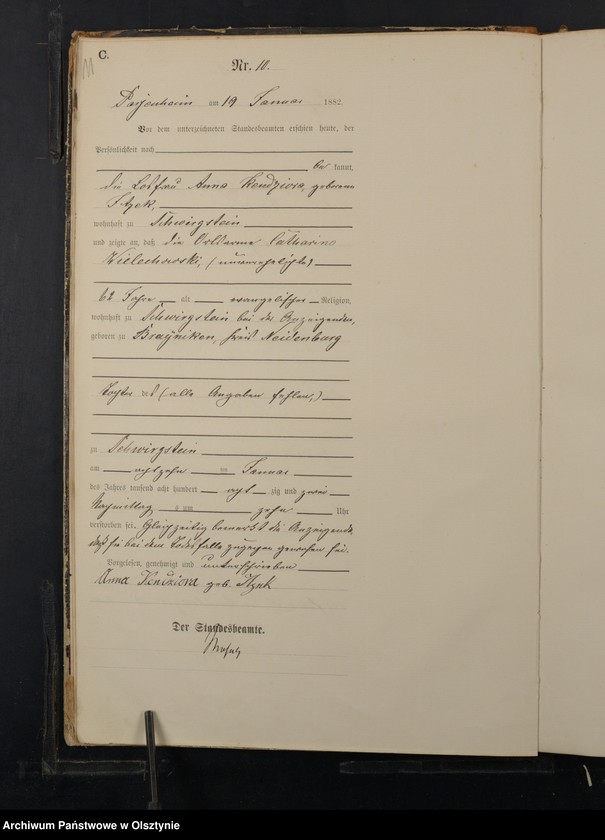 C.
11
Nr. 10.
am 19 Januar 1882.
Vor dem unterzeichneten Standesbeamten erschien heute, der
Persönlichkeit nach
be kannt,
die Losfrau Anna Kendziora, geborene
wohnhaft zu Schwirgstein
und zeigte an, daß die Ortsarme Catharina
Wielechowski, (unverehelichte)
62 Jahre alt evangelischer Religion,
wohnhaft zu Schwirgstein bei der Anzeigenden,
geboren zu Kreis Neidenburg
Tochter der (alle Angaben fehlen,)
zu Schwirgstein
am achtzehn ten Januar
des Jahres tausend acht hundert acht zig und zwei
Nachmittags um zehn Uhr
verstorben sei. Gleichzeitig bemerkt die Anzeigende,
daß sie bei dem Todesfalle zugegen gewesen sei.
Vorgelesen, genehmigt und unterschrieben
Anna Kendziora geb.
Der Standesbeamte.
Archiwum Państwowe w Olsztynie